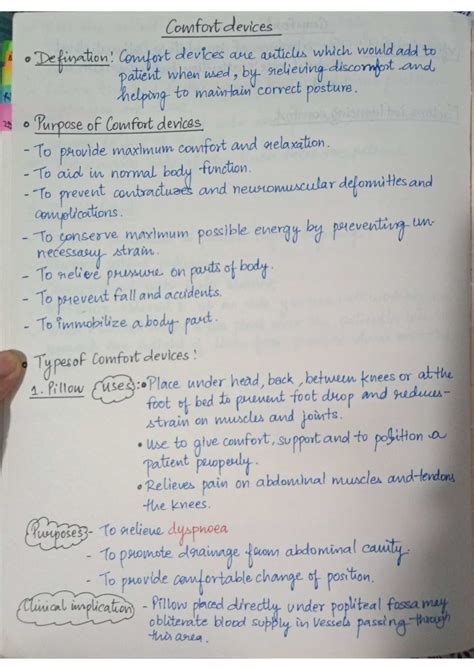 Comfort devices
• Defination: Comfort devices are articles which would add to
patient when used, by relieving discomfort and
helping to maintain correct posture.
• Purpose of Comfort devices
- To provide maximum comfort and relaxation.
- To aid in normal body function.
- To prevent contractures and neuromuscular deformities and
complications.
- To conserve maximum possible energy by preventing un-
necessary strain.
- To relieve pressure on parts of body.
- To prevent fall and accidents.
- To immobilize a body part.
• Types of Comfort devices:
1. Pillow Uses: • Place under head, back, between knees or at the
foot of bed to prevent foot drop and reduces
strain on muscles and joints.
• Use to give comfort, support and to position a
patient properly.
• Relieves pain on abdominal muscles and tendons
the knees.
Purposes - To relieve dyspnoea
- To promote drainage from abdominal cavity.
- To provide comfortable change of position.
Clinical implication - Pillow placed directly under popliteal fossa may
obliterate blood supply in vessels passing through
this area.